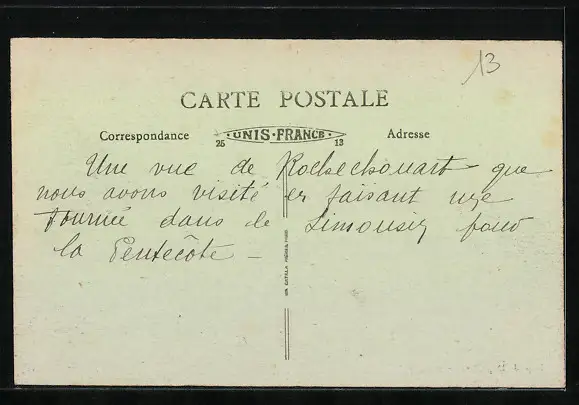 13
CARTE POSTALE
Correspondance
25 · UNIS-FRANCE · 13
Adresse
Une vue de Rochechouart que
nous avons visité en faisant une
tournée dans le Limousin pour
la Pentecôte –